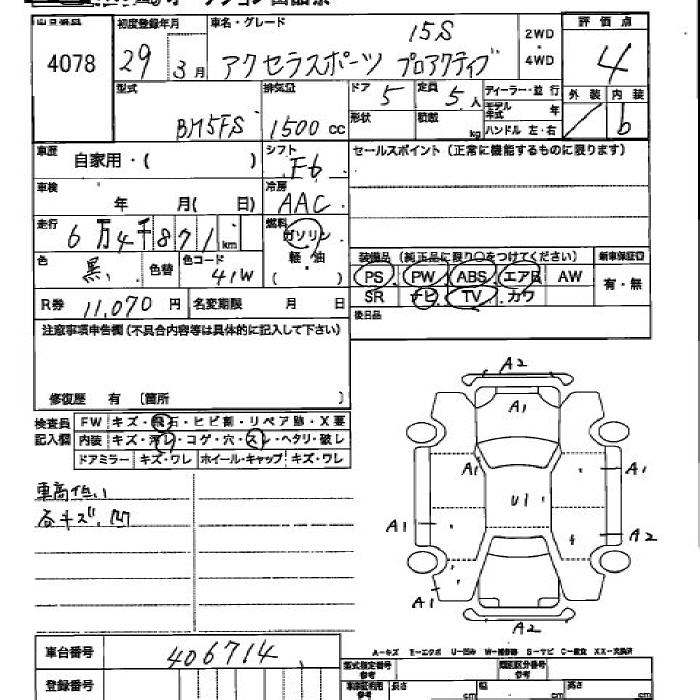 出品番号 初度登録年月 車名・グレード 15S 2WD・4WD 評価点
4078 29 3月 アクセラスポーツ プロアクティブ 4
型式 排気量 ドア 5 定員 5人 ディーラー・並行 外装 内装
BM5FS 1500 cc 形状 積載 kg モデル年式 年 b
ハンドル 左・右
車歴 自家用・( ) シフト F6 セールスポイント(正常に機能するものに限ります)
車検 年 月( 日) 冷房 AAC
走行 6万4千871 km 燃料 ガソリン
軽・油
( )
色 黒 色替 色コード 41W
装備品(純正品に限り○をつけてください) 新車保証書
PS PW ABS エアB AW 有・無
SR ナビ TV カワ
R券 11,070 円 名変期限 月 日 後日品
注意事項申告欄(不具合内容等は具体的に記入して下さい)
修復歴 有 (箇所 )
検査員記入欄 FW キズ・飛石・ヒビ割・リペア跡・X要
内装 キズ・汚レ・コゲ・穴・スレ・ヘタリ・破レ
ドアミラー キズ・ワレ ホイール・キャップ キズ・ワレ
車高低い
各キズ、凹
A2
A1
A1 A1
U1
A1 A2
A1
A2
A-キズ E-エクボ U-凹み W-補修跡 S-サビ C-腐食 XX-交換済
車台番号 406714
型式指定番号 参考 類別区分番号 参考
登録番号 車庫証明用 参考 長さ cm 幅 cm 高さ cm